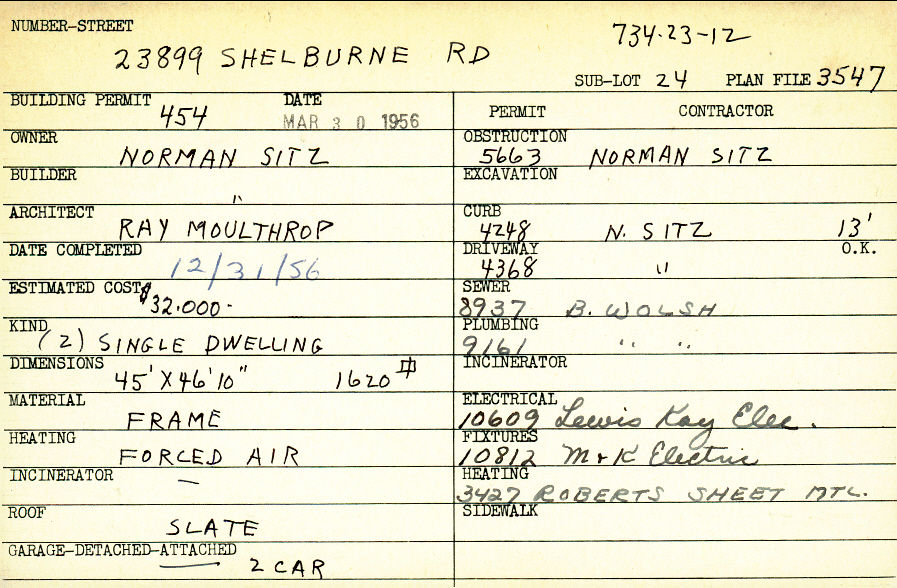 NUMBER-STREET
734-23-12
23899 SHELBURNE RD
SUB-LOT 24 PLAN FILE 3547
BUILDING PERMIT 454 DATE MAR 30 1956
OWNER NORMAN SITZ
BUILDER "
ARCHITECT RAY MOULTHROP
DATE COMPLETED 12/31/56
ESTIMATED COST $32.000-
KIND (2) SINGLE DWELLING
DIMENSIONS 45' X 46' 10" 1620
MATERIAL FRAME
HEATING FORCED AIR
INCINERATOR —
ROOF SLATE
GARAGE-DETACHED-ATTACHED 2 CAR
PERMIT CONTRACTOR
OBSTRUCTION 5663 NORMAN SITZ
EXCAVATION
CURB 4248 N. SITZ 13'
DRIVEWAY 4368 " O.K.
SEWER 8937 B. WOLSH
PLUMBING 9161 " "
INCINERATOR
ELECTRICAL 10609 Lewis Kay Elec.
FIXTURES 10812 M & K Electric
HEATING 3427 ROBERTS SHEET MTL.
SIDEWALK